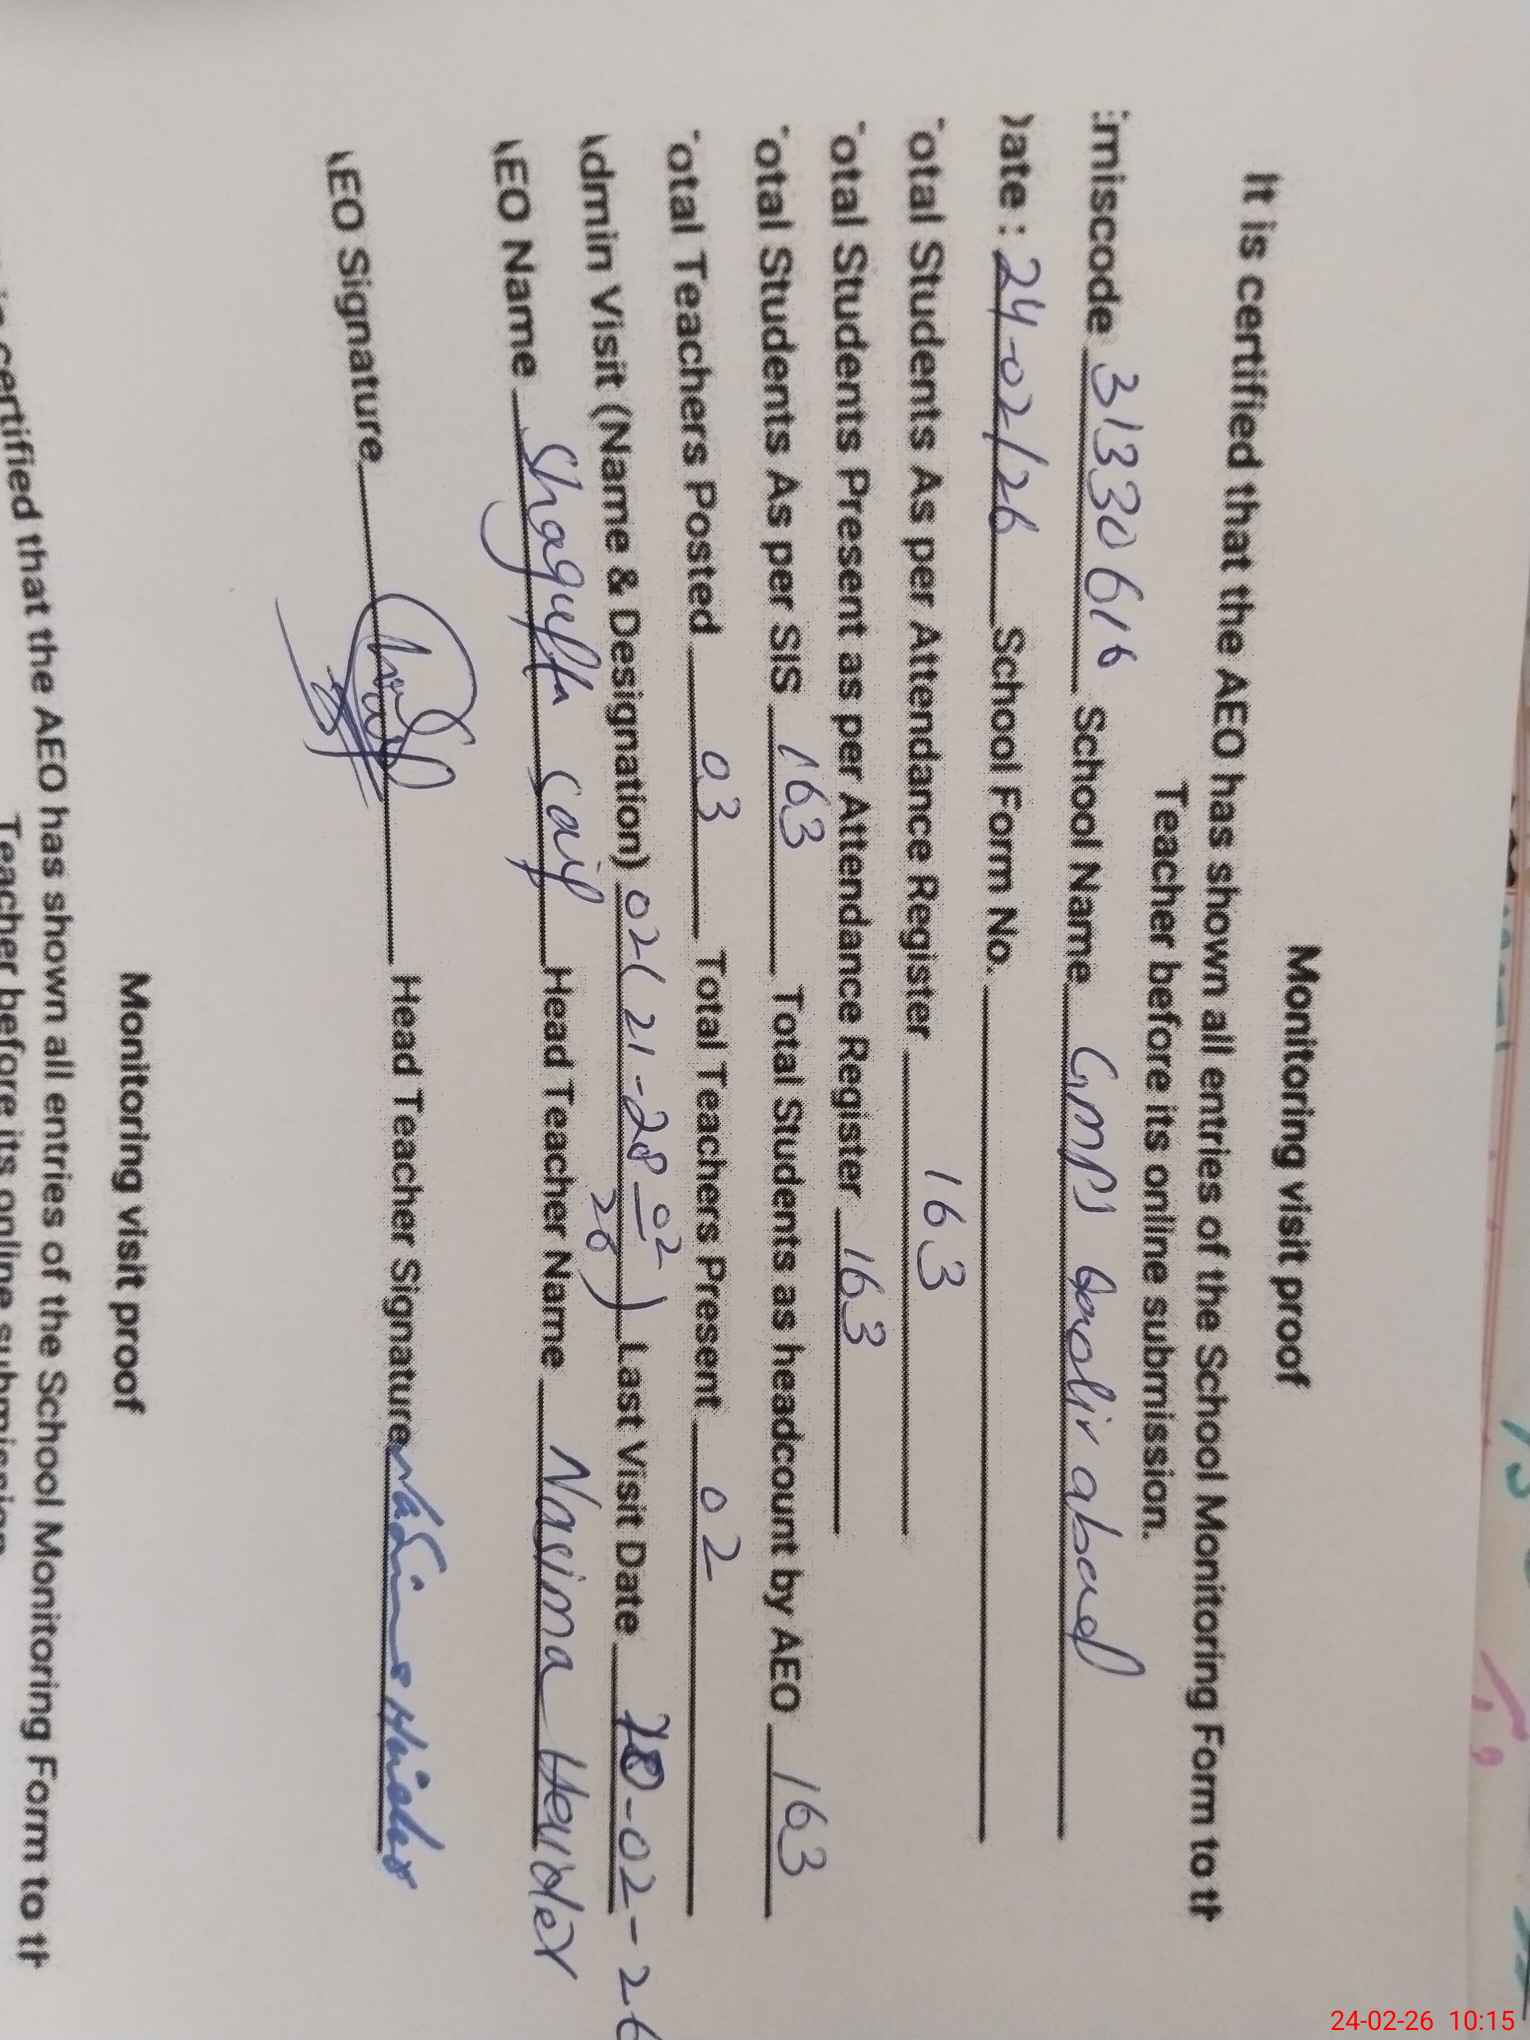 Monitoring visit proof
It is certified that the AEO has shown all entries of the School Monitoring Form to th
Teacher before its online submission.
Emiscode 31330616 School Name GMPS
Date : 24-02/26 School Form No.
Total Students As per Attendance Register 163
Total Students Present as per Attendance Register 163
Total Students As per SIS 163 Total Students as headcount by AEO 163
Total Teachers Posted 03 Total Teachers Present 02
Admin Visit (Name & Designation) 02( 21-28 02/26 ) Last Visit Date -02-26
AEO Name Shagufta Head Teacher Name Nasima Haider
AEO Signature Head Teacher Signature Nasima Haider
Monitoring visit proof
is certified that the AEO has shown all entries of the School Monitoring Form to th
Teacher before its online submission
24-02-26 10:15